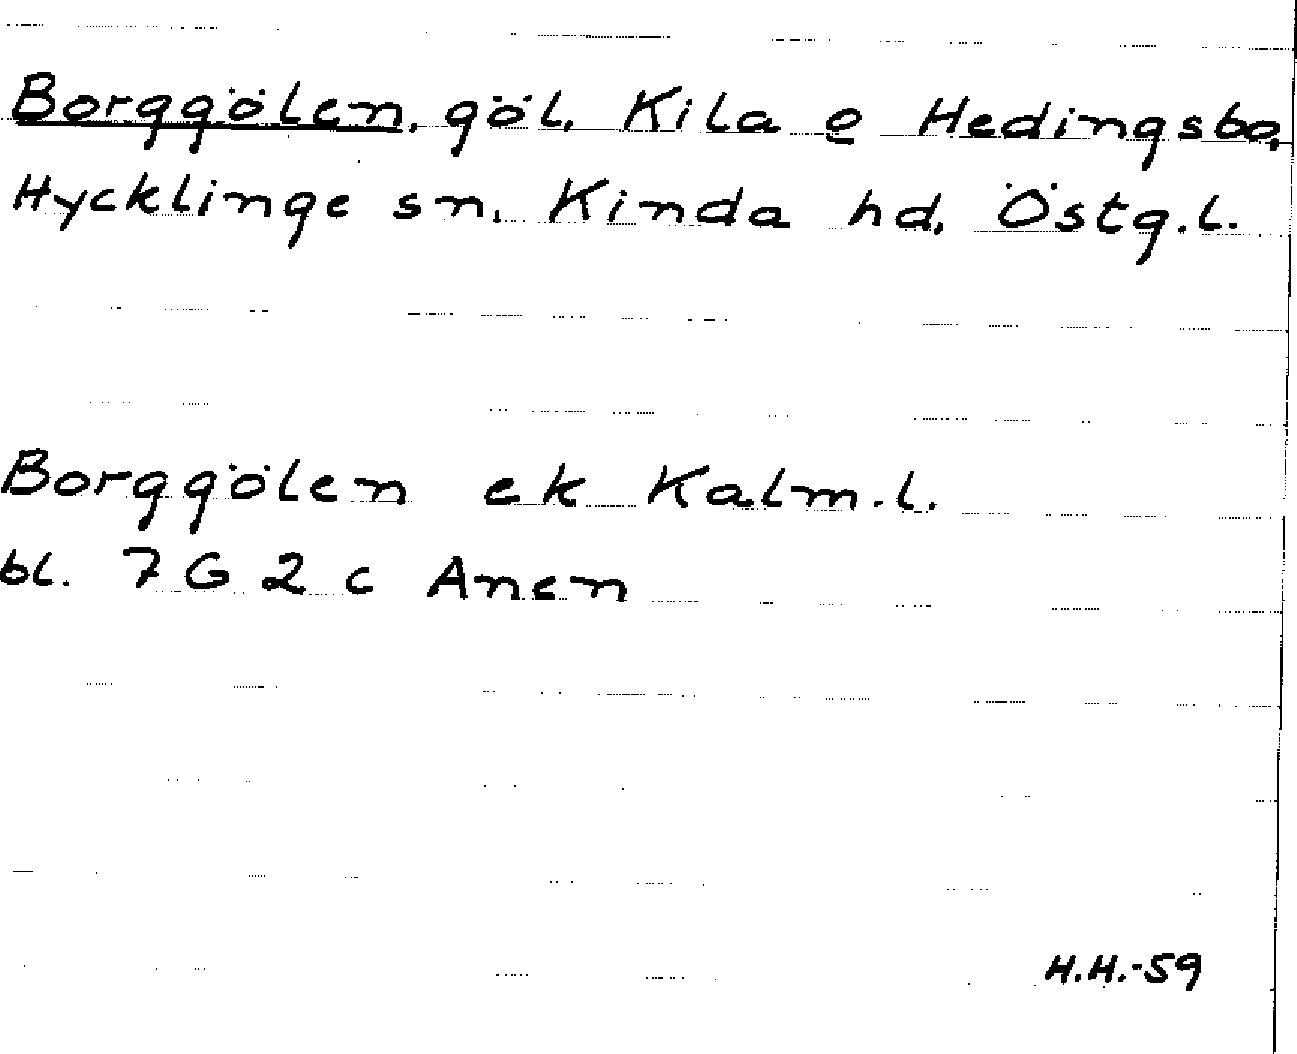 Borggölen, göl, Kila o Hedingsbo,
Hycklinge sn, Kinda hd, Östg.l.
Borggölen ek Kalm.l.
bl. 7 G 2 c Anen
H.H.-59